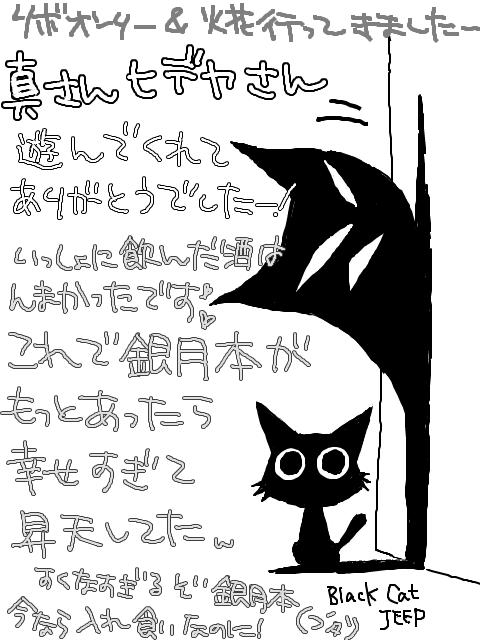 リボオンリー&火花行ってきましたー
真さんヒデヤさん
遊んでくれて
ありがとうでしたー!
いっしょに飲んだ酒は
んまかったです♡♡
これで銀月本が
もっとあったら
幸せすぎて
昇天してたw
すくなすぎるぞい銀月本
今なら入れ食いなのに!
Black Cat
JEEP